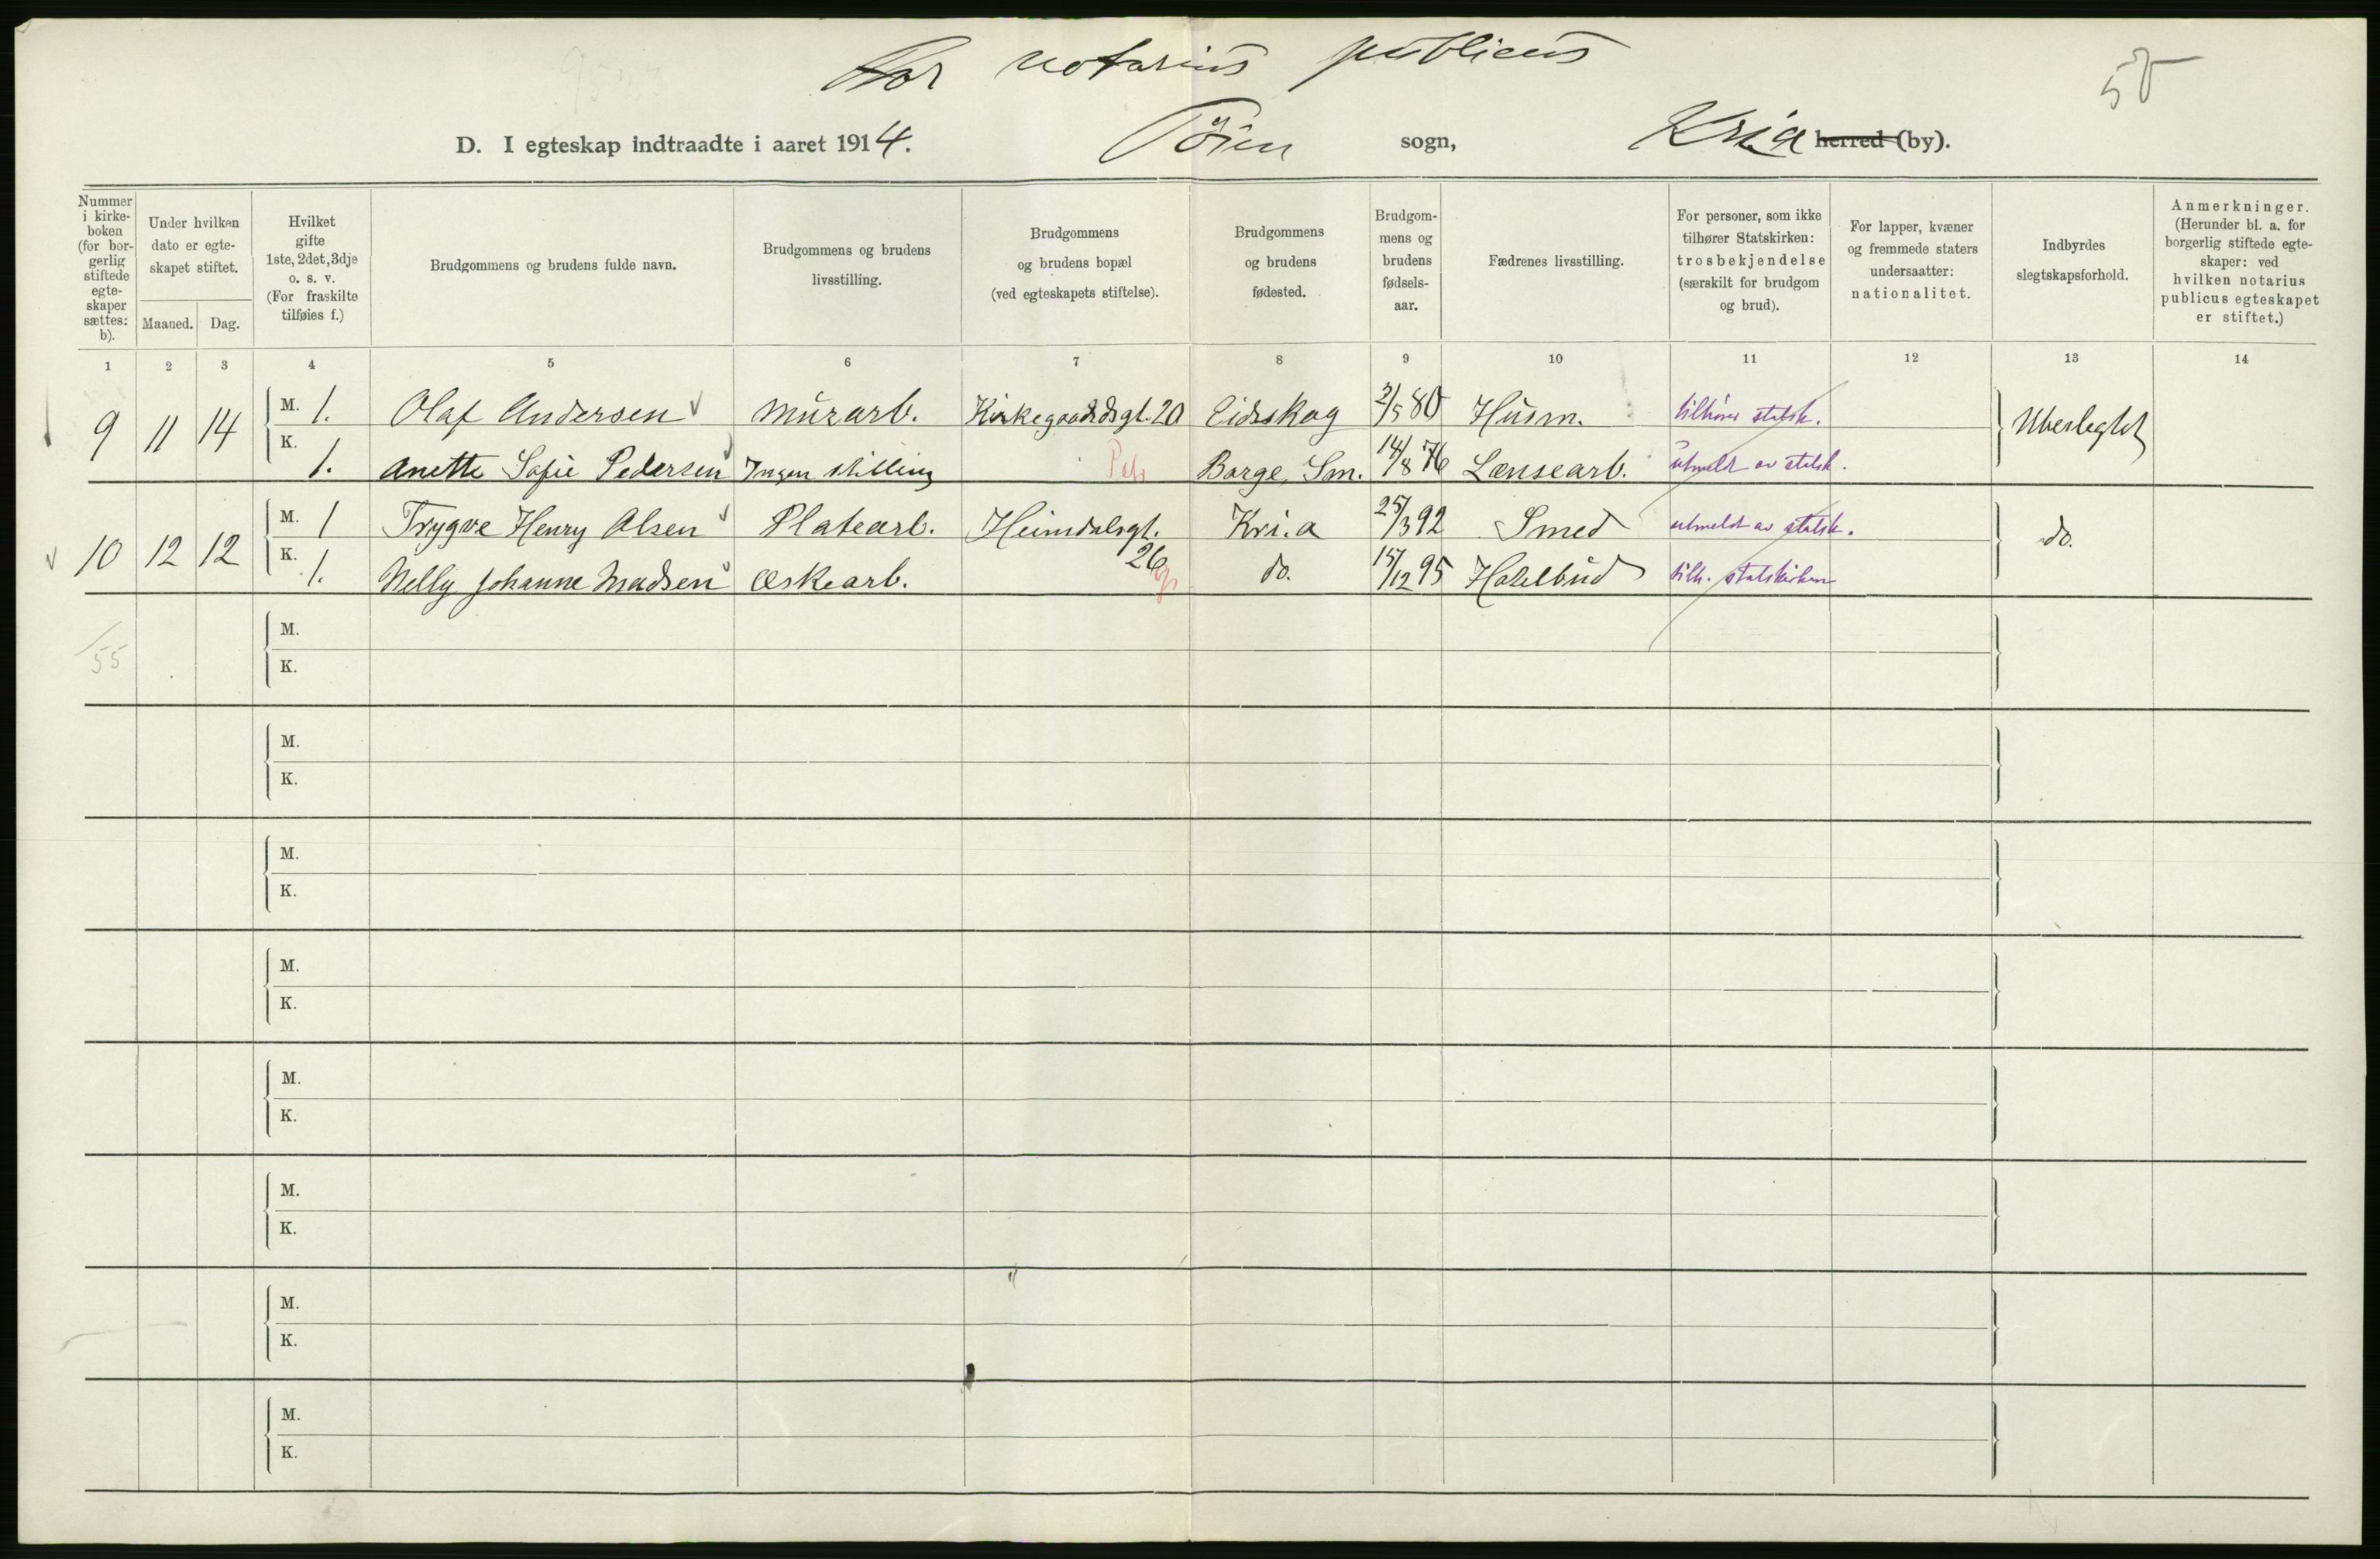 For notarius publicus
50
D. I egteskap indtraadte i aaret 1914. Tøien sogn, Kria herred (by).
Nummer i kirke-boken (for bor-gerlig stiftede egte-skaper sættes: b).
Under hvilken dato er egte-skapet stiftet.
Maaned. Dag.
Hvilket gifte 1ste, 2det, 3dje o. s. v. (For fraskilte tilføies f.)
Brudgommens og brudens fulde navn.
Brudgommens og brudens livsstilling.
Brudgommens og brudens bopæl (ved egteskapets stiftelse).
Brudgommens og brudens fødested.
Brudgom-mens og brudens fødsels-aar.
Fædrenes livsstilling.
For personer, som ikke tilhører Statskirken: trosbekjendelse (særskilt for brudgom og brud).
For lapper, kvæner og fremmede staters undersaatter: nationalitet.
Indbyrdes slegtskapsforhold.
Anmerkninger. (Herunder bl. a. for borgerlig stiftede egte-skaper: ved hvilken notarius publicus egteskapet er stiftet.)
1 2 3 4 5 6 7 8 9 10 11 12 13 14
9 11 14 M. 1. Olaf Andersen Murarb. Kirkegaardsgt. 20 Eidskog 2/5 80 Husm. tilhører statsk. Ubeslegtet
K. 1. Anette Sofie Pedersen Ingen stilling Borge, Sm. 14/8 76 Lænsearb. utmeldt av statsk.
10 12 12 M. 1 Trygve Henry Olsen Platearb. Heimdalsgt. 26 Kri.a 25/3 92 Smed utmeldt av statsk. do.
K. 1. Nelly Johanne Madsen Æskearb. do. 15/12 95 Hotelbud tilh. statskirken
55
M.
K.
M.
K.
M.
K.
M.
K.
M.
K.
M.
K.
M.
K.
M.
K.